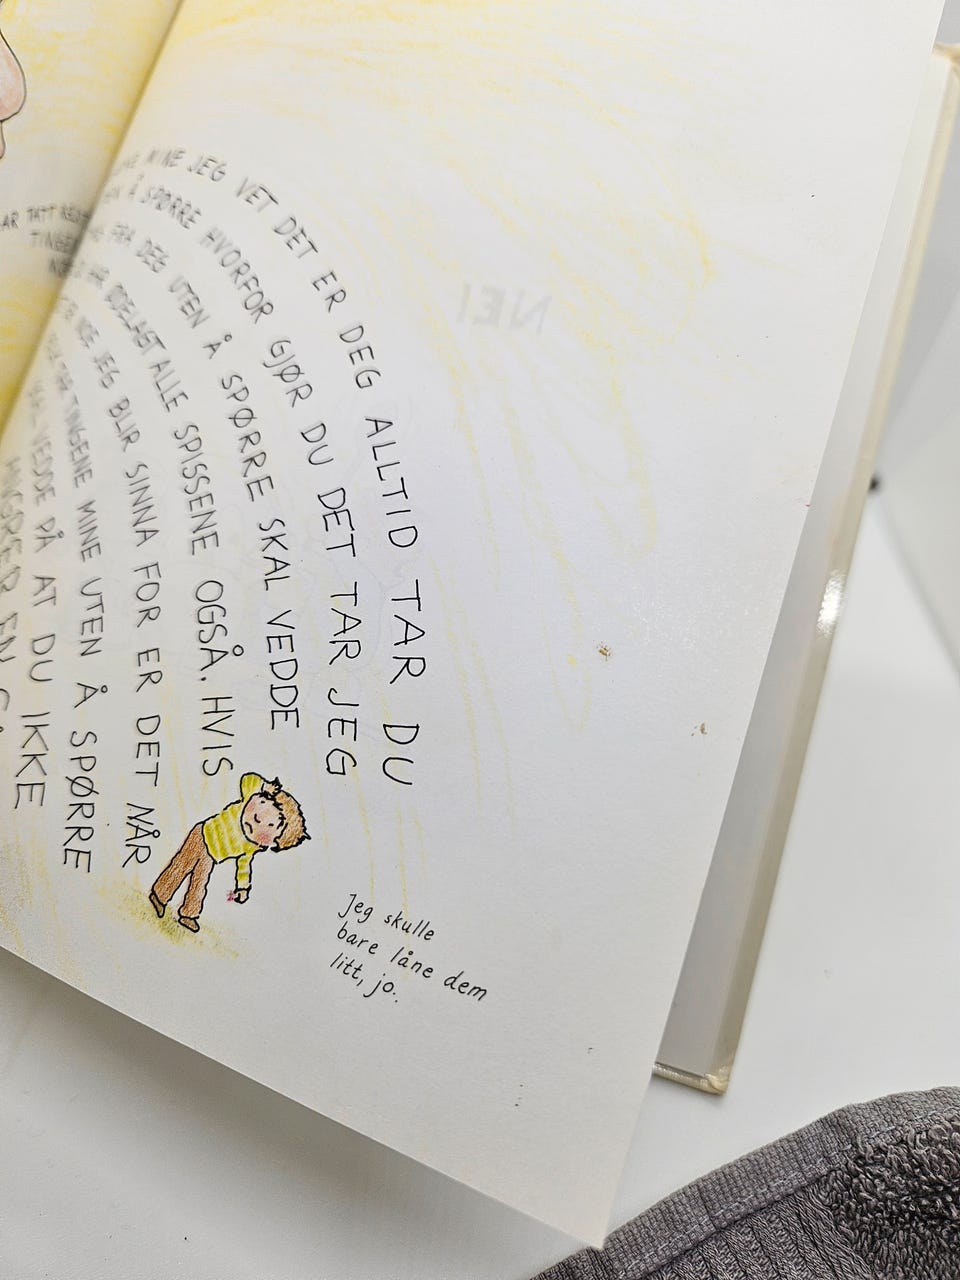 MINE JEG VET DET ER DEG ALLTID TAR DU
Å SPØRRE HVORFOR GJØR DU DET TAR JEG
FRA DEG UTEN Å SPØRRE SKAL VEDDE
HAR ØDELAGT ALLE SPISSENE OGSÅ. HVIS
NOE JEG BLIR SINNA FOR ER DET NÅR
TAR TINGENE MINE UTEN Å SPØRRE
SKAL VEDDE PÅ AT DU IKKE
ANGRER EN
TATT
TINGEN
NEI
Jeg skulle
bare låne dem
litt, jo.